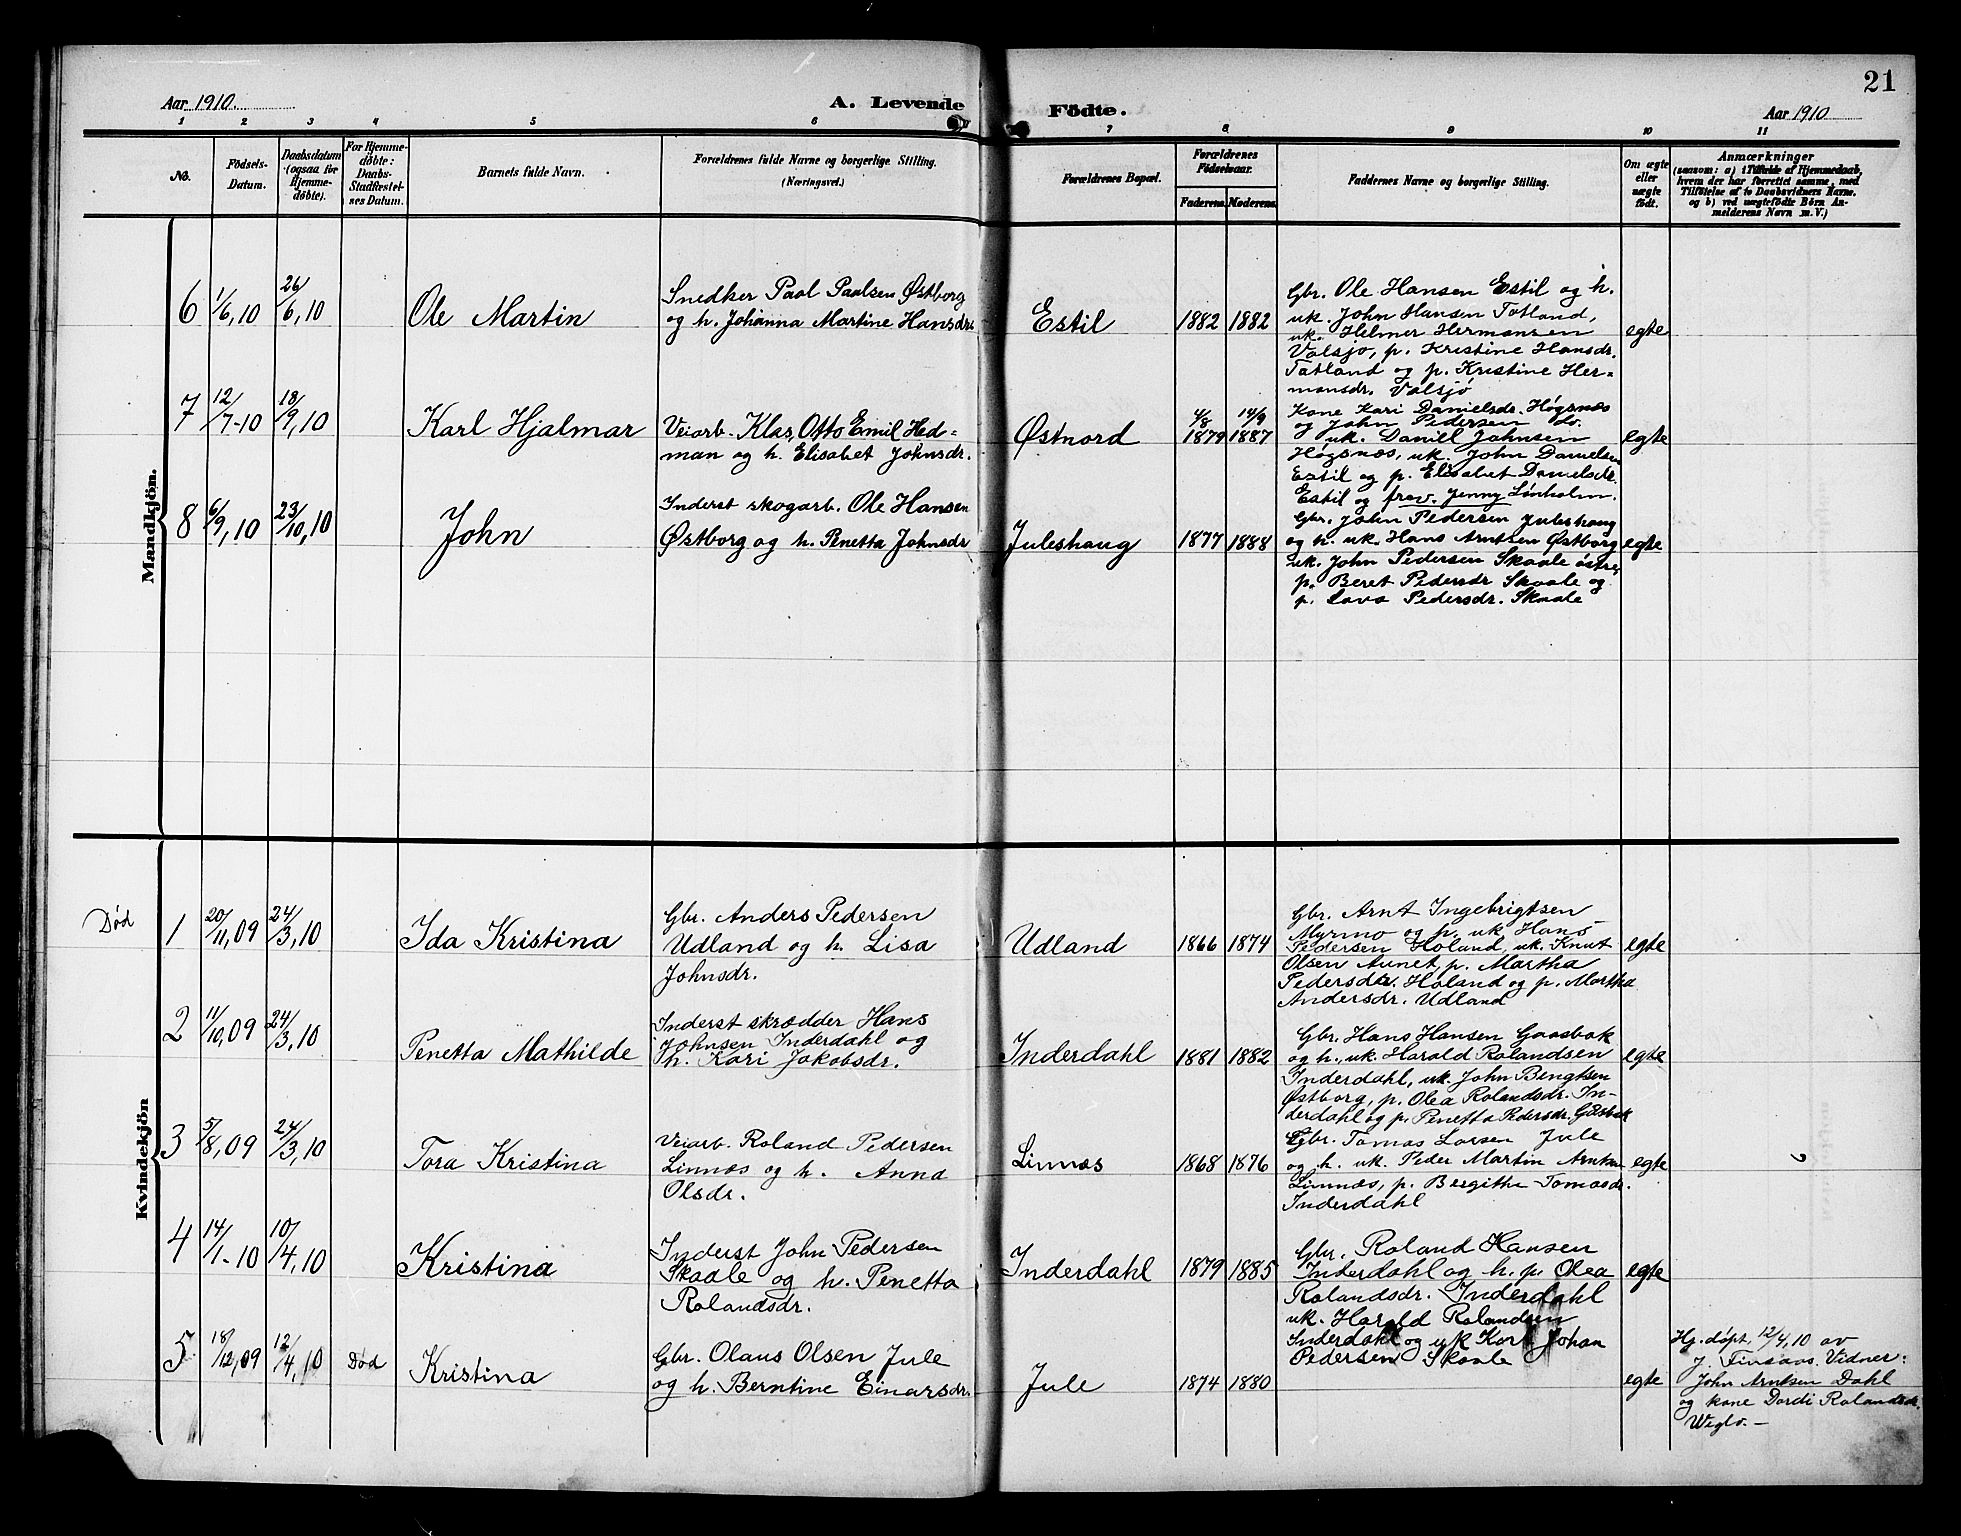 21
Aar 1910.
A. Levende Födte.
Aar 1910
1 2 3 4 5 6 7 8 9 10 11
No.
Födsels-
Datum.
Daabsdatum
(ogsaa for
Hjemme-
døbte).
For Hjemme-
døbte:
Daabs-
Stadfæstel-
ses Datum.
Barnets fulde Navn.
Forældrenes fulde Navne og borgerlige Stilling.
(Næringsvei.)
Forældrenes Bopæl.
Forældrenes
Födselsaar.
Faderens. Moderens.
Faddernes Navne og borgerlige Stilling.
Om ægte
eller
uægte
födt.
Anmærkninger
(saasom: a) i Tilfælde af Hjemmedaab,
hvem der har forrettet samme, med
Tilføielse af to Daabsvidners Navne.
og b) ved uægtefødte Börn An-
melderens Navn m. V.)
Mandkjön.
6
1/6, 10
26/6, 10
Ole Martin
Snedker Paal Paalsen Østborg
og h. Johanna Martine Hansdr.
Estil
1882 1882
Gbr. Ole Hansen Estil og h.
uk. John Hansen Totland,
uk. Helmer Hermansen
Valsjø, p. Kristine Hansdr.
Tatland og p. Kristine Her-
mansdr. Valsjö
egte
7
12/7-10
18/9, 10
Karl Hjalmar
Veiarb. Klas Otto Emil Hed-
man og h. Elisabet Johnsdr.
Østnord
4/8 1879
14/9 1887
Kone Kari Danielsdr. Høgsnæs
og John Pedersen
uk. Daniel Johnsen
Høgsnæs, uk. John Danielsen
Estil og p. Elisabet Danielsdr.
Estil og frøv. Jenny Lønholm.
egte
8
6/9, 10
23/10, 10
John
Inderst skogarb. Ole Hansen
Østborg og h. Penetta Johnsdr
Juleshaug
1877 1888
Gbr. John Pedersen Juleshaug
og h. uk. Hans Arntsen Østborg
uk. John Pedersen Skaale østre,
p. Beret Pedersdr Skaale og
p. Lava Pedersdr. Skaale
egte
Kvindekjön
Død
1
20/11, 09
24/3, 10
Ida Kristina
Gbr. Anders Pedersen
Udland og h. Lisa
Johnsdr.
Udland
1866 1874
Gbr. Arnt Ingebrigtsen
Myrmo og h. uk Hans
Pedersen Holand, uk. Knut
Olsen Aunet, p. Martha
Pedersdr. Holand og p. Martha
Andersdr. Udland
egte
2
11/10, 09
24/3, 10
Penetta Mathilde
Inderst skrædder Hans
Johnsen Inderdahl og
h. Kari Jakobsdr.
Inderdahl
1881 1882
Gbr. Hans Hansen Gaasbak
og h., uk. Harald Rolandsen
Inderdahl, uk. John Bengtsen
Østborg, p. Olea Rolandsdr. In-
derdahl og p. Penetta Pedersdr. Gåsbak
egte
3
5/8, 09
24/3, 10
Tora Kristina
Veiarb. Roland Pedersen
Linnæs og h. Anna
Olsdr.
Linnæs
1868 1876
Gbr. Tomas Larsen Jule
og h. uk. Peder Martin Arntsen
Linnæs, p. Bergithe Tomasdr.
Inderdahl
egte
4
14/1-10
10/4, 10
Kristina
Inderst John Pedersen
Skaale og h. Penetta
Rolandsdr.
Inderdahl
1879 1885
Gbr. Roland Hansen
Inderdahl og h. p. Olea
Rolandsdr. Inderdahl
uk. Harald Rolandsen
Inderdahl og uk Karl Johan
Pedersen Skaale
egte
5
18/12, 09
12/4, 10
Død
Kristina
Gbr. Olaus Olsen Jule
og h. Berntine Einarsdr.
Jule
1874 1880
egte
Hj. døpt, 12/4, 10 av
J. Finsaas. Vidner:
John Arntsen Dahl
og kone Dordi Rolandsdr.